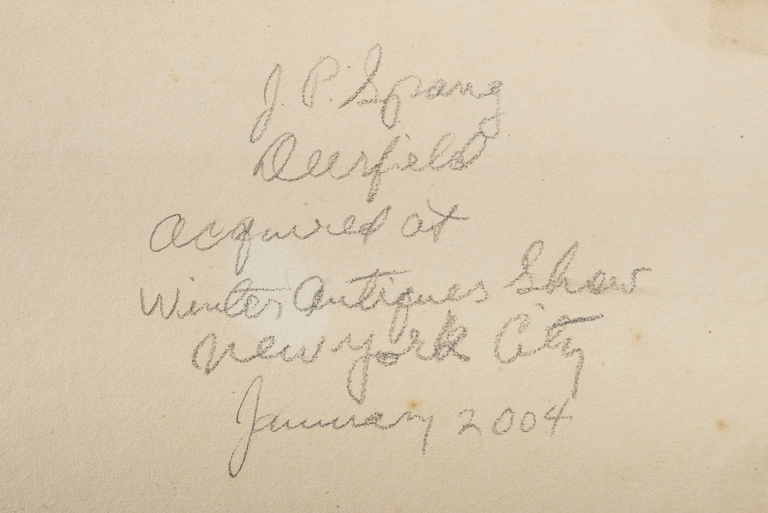 J. P. Spang
Deerfield
acquired at
Winter Antiques Show
New York City
January 2004